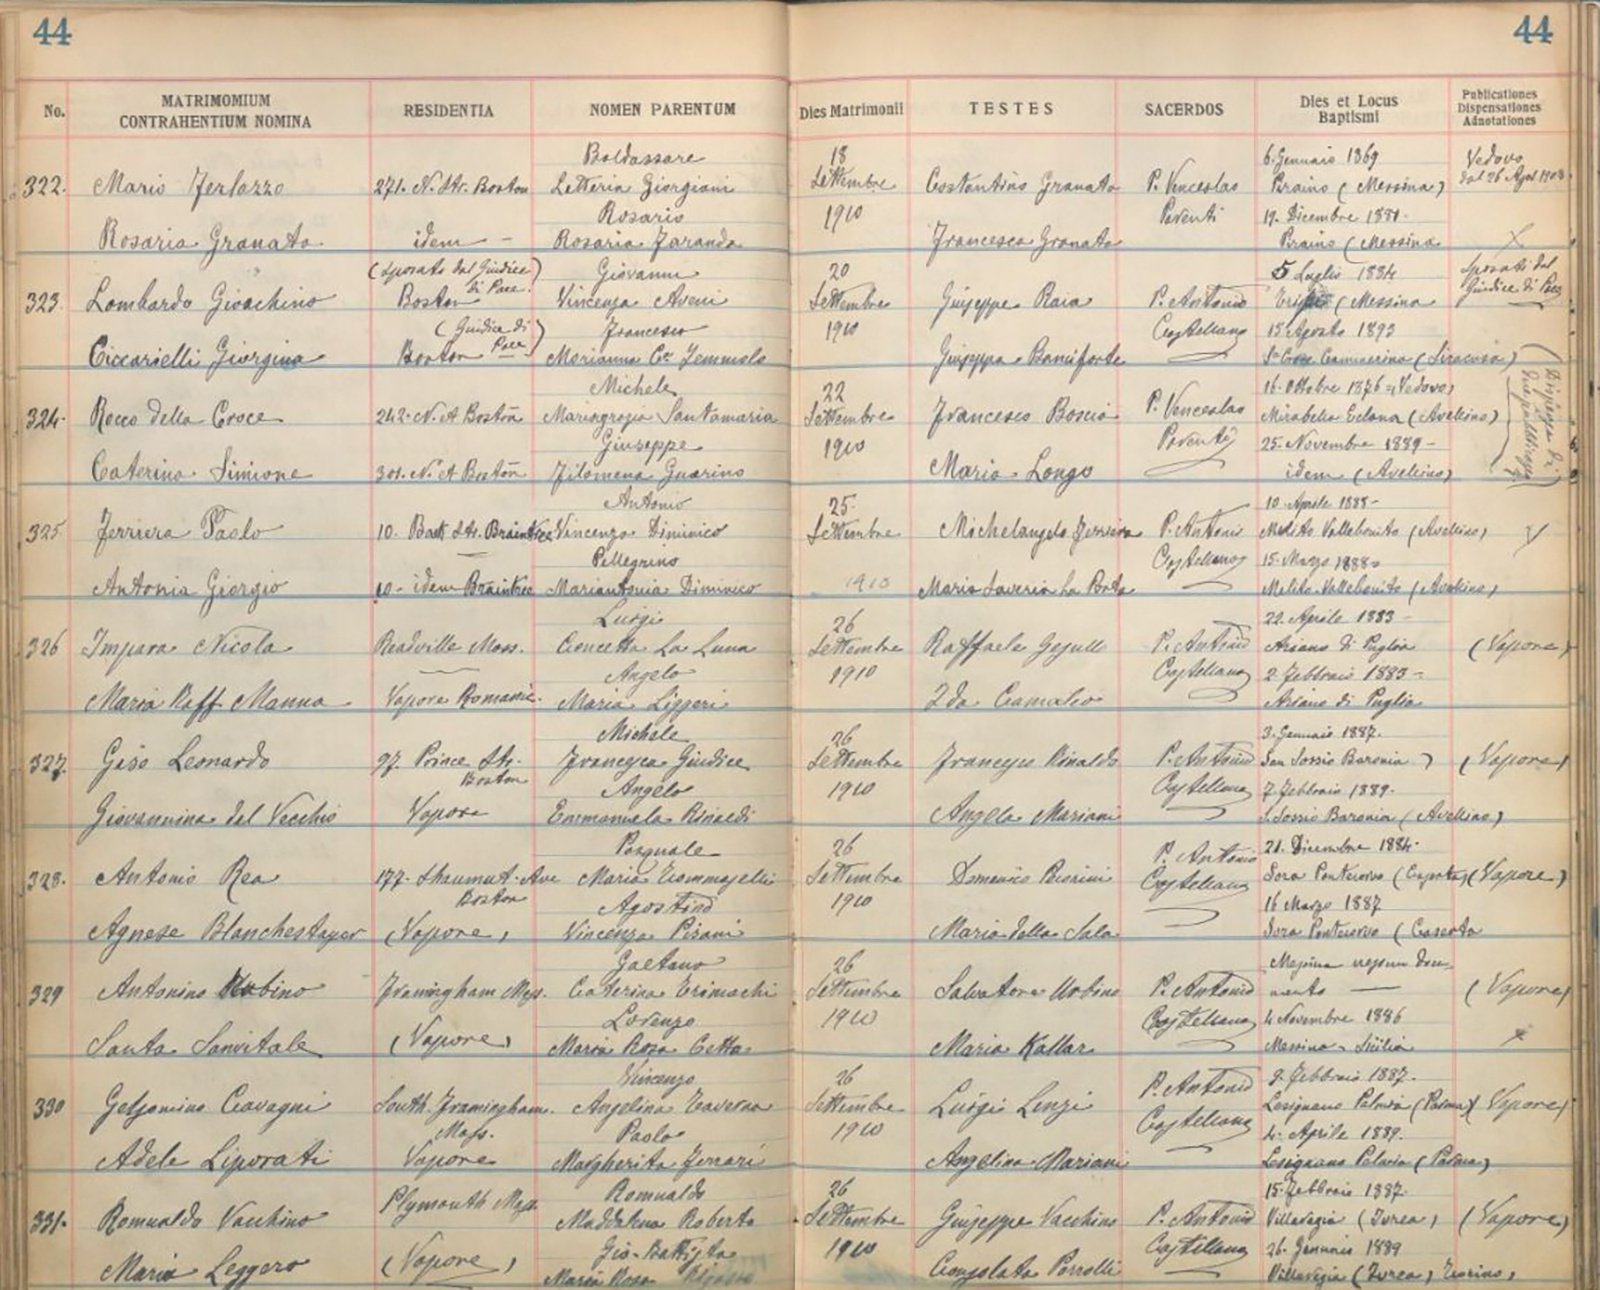 44
44
No.
MATRIMOMIUM
CONTRAHENTIUM NOMINA
RESIDENTIA
NOMEN PARENTUM
Dies Matrimonii
TESTES
SACERDOS
Dies et Locus
Baptismi
Publicationes
Dispensationes
Adnotationes
Baldassare 18 6. Gennaio 1869 Vedovo
322. Mario Ferlazzo 271. N. Str. Boston Letteria Giorgiani Settembre Costantino Granato P. Venceslao Braino (Messina)
Rosario 1910 19. Dicembre 1881.
Rosaria Granato idem Rosaria Faranda Francesca Granato Braino (Messina
(Sposato dal Giudice Giovanni 20 5 Luglio 1884 Sposati dal
di Pace.) Giudice di Pace
323. Lombardo Gioachino Boston Vincenza Aveni Settembre Giuseppe Raia P. Antonio (Messina
(Giudice di Pace) Francesco 1910 Castellano 15 Agosto 1893
Ciccarielli Giorgina Boston Marianna Giuseppa Banciforte (Siracusa)
Michele 22 16. Ottobre 1876 Vedovo
324. Rocco della Croce 242. N. A Boston Mariagrazia Santamaria Settembre Francesco Boscia P. Venceslao Mirabella Eclana (Avellino)
Giuseppe 1910 25. Novembre 1889
Caterina Simione 301. N. A Boston Filomena Guarino Maria Longo idem (Avellino)
Antonio 25. 10. Aprile 1888
325 Ferriera Paolo 10. Str. Braintree Vincenza Diminico Settembre Michelangelo Ferriera P. Antonio Melito Vallebonito (Avellino)
Pellegrino Castellano 15. Marzo 1888
Antonia Giorgio 10. idem Braintree Mariantonia Diminico 1910 Maria Saveria La Porta Melito Vallebonito (Avellino)
Luigi 26 22. Aprile 1883
326 Impara Nicola Readville Mass. Concetta La Luna Settembre Raffaele P. Antonio Ariano di Puglia (Vapore)
Angelo 1910 Castellano 2 Febbraio 1883
Maria Raff Manna Vapore Romanic. Maria Liggeri Ida Ariano di Puglia
Michele 26 3. Gennaio 1887.
327. Giso Leonardo 97. Prince Str. Francesca Giudice Settembre Francesco Rinaldo P. Antonio San Sossio Baronia (Vapore)
Boston Angelo 1910 Castellano 7 Febbraio 1889.
Giovannina del Vecchio Vapore Emmanuela Rinaldi Angela Mariani S. Sossio Baronia (Avellino)
Pasquale 26 21. Dicembre 1884.
328. Antonio Rea 177. Shawmut Ave Maria Settembre Domenico P. Antonio Sora Pontecorvo (Caserta) (Vapore)
Boston Agostino 1910 Castellano 16 Marzo 1887
Agnese (Vapore) Vincenza Pisani Maria della Sala Sora Pontecorvo (Caserta
Gaetano 26 Messina
329 Antonino Framingham Mass. Caterina Settembre Salvatore Urbino P. Antonio (Vapore)
Lorenzo 1910 Castellano 4 Novembre 1886
Santa Sanvitale (Vapore) Maria Rosa Cetta Maria Kallar Messina Sicilia
Vincenzo 26 Febbraio 1887.
330 Gelsomino Cavagni South Framingham Angelina Taverna Settembre Luigi Lenzi P. Antonio Lesignano Palmia (Parma) (Vapore)
Mass. Paolo 1910 Castellano 4. Aprile 1889.
Adele Liporati Vapore Margherita Ferrari Angelina Mariani Lesignano Palmia (Parma)
Romualdo 26 15 Febbraio 1887.
331. Romualdo Vacchino Plymouth Mass Maddalena Roberto Settembre Giuseppe Vacchino P. Antonio (Ivrea) (Vapore)
Gio. Battista 1910 Castellano 26. Gennaio 1889
Maria Leggero (Vapore) Maria Rosa Consolata Porrolli (Ivrea) Torino